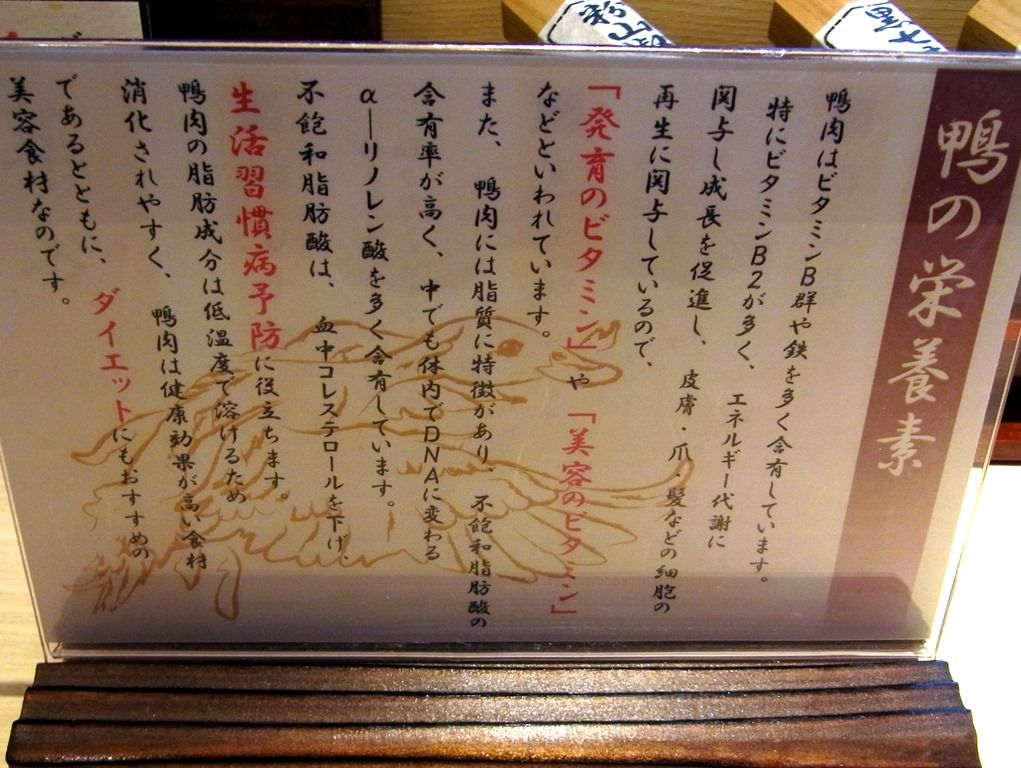 鴨の栄養素
鴨肉はビタミンB群や鉄を多く含有しています。
特にビタミンB2が多く、エネルギー代謝に
関与し成長を促進し、皮膚・爪・髪などの細胞の
再生に関与しているので、
「発育のビタミン」や「美容のビタミン」
などといわれています。
また、鴨肉には脂質に特徴があり、不飽和脂肪酸の
含有率が高く、中でも体内でDNAに変わる
α―リノレン酸を多く含有しています。
不飽和脂肪酸は、血中コレステロールを下げ、
生活習慣病予防に役立ちます。
鴨肉の脂肪成分は低温度で溶けるため
消化されやすく、鴨肉は健康効果が高い食材
であるとともに、ダイエットにもおすすめの
美容食材なのです。